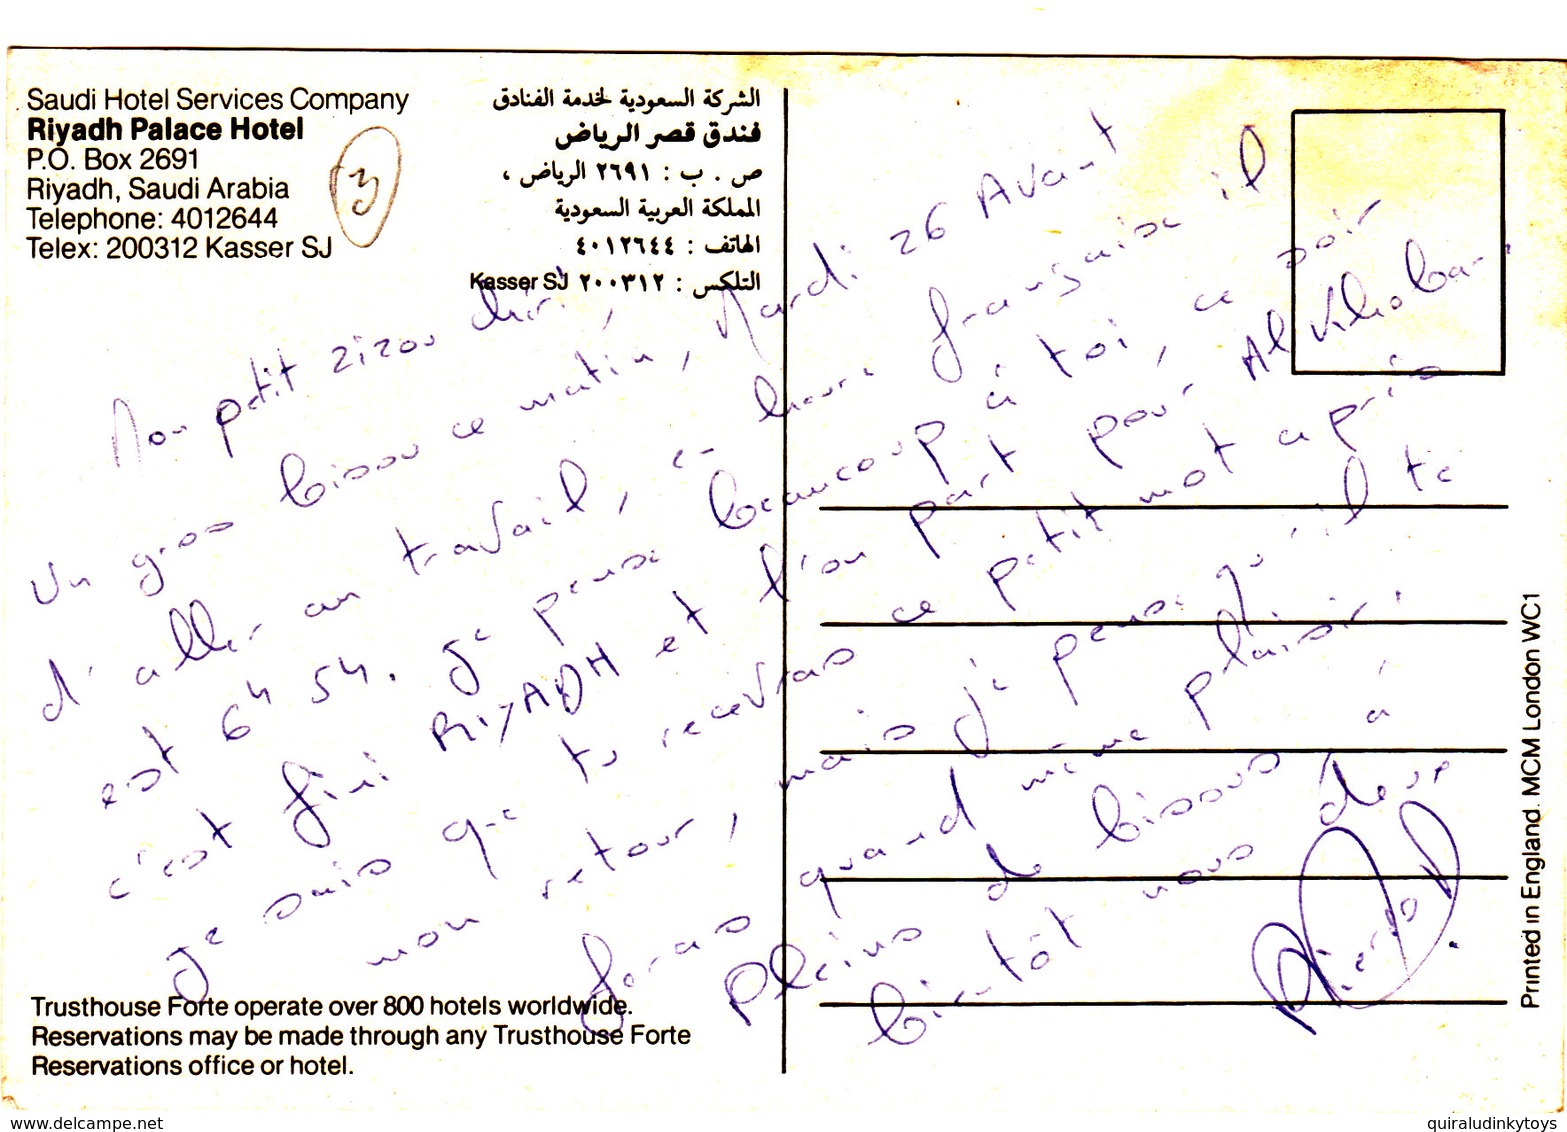 Saudi Hotel Services Company
Riyadh Palace Hotel
P.O. Box 2691
Riyadh, Saudi Arabia
Telephone: 4012644
Telex: 200312 Kasser SJ
3
الشركة السعودية لخدمة الفنادق
فندق قصر الرياض
ص . ب : ٢٦٩١ الرياض ،
المملكة العربية السعودية
الهاتف : ٤٠١٢٦٤٤
التلكس : ٢٠٠٣١٢ Kasser SJ
Mon petit zizou chéri,
Un gros bisou ce matin, Mardi 26 Avant
d'aller au travail, en heure française il
est 6h 54. Je pense beaucoup à toi, ce soir
c'est fini RIYADH et l'on part pour Al Khobar.
Je sais que tu recevras ce petit mot après
mon retour, mais je pense qu'il te
feras quand même plaisir.
Pleins de bisous à
bientôt nous deux
Trusthouse Forte operate over 800 hotels worldwide.
Reservations may be made through any Trusthouse Forte
Reservations office or hotel.
Printed in England. MCM London WC1
www.delcampe.net
quiraludinkytoys